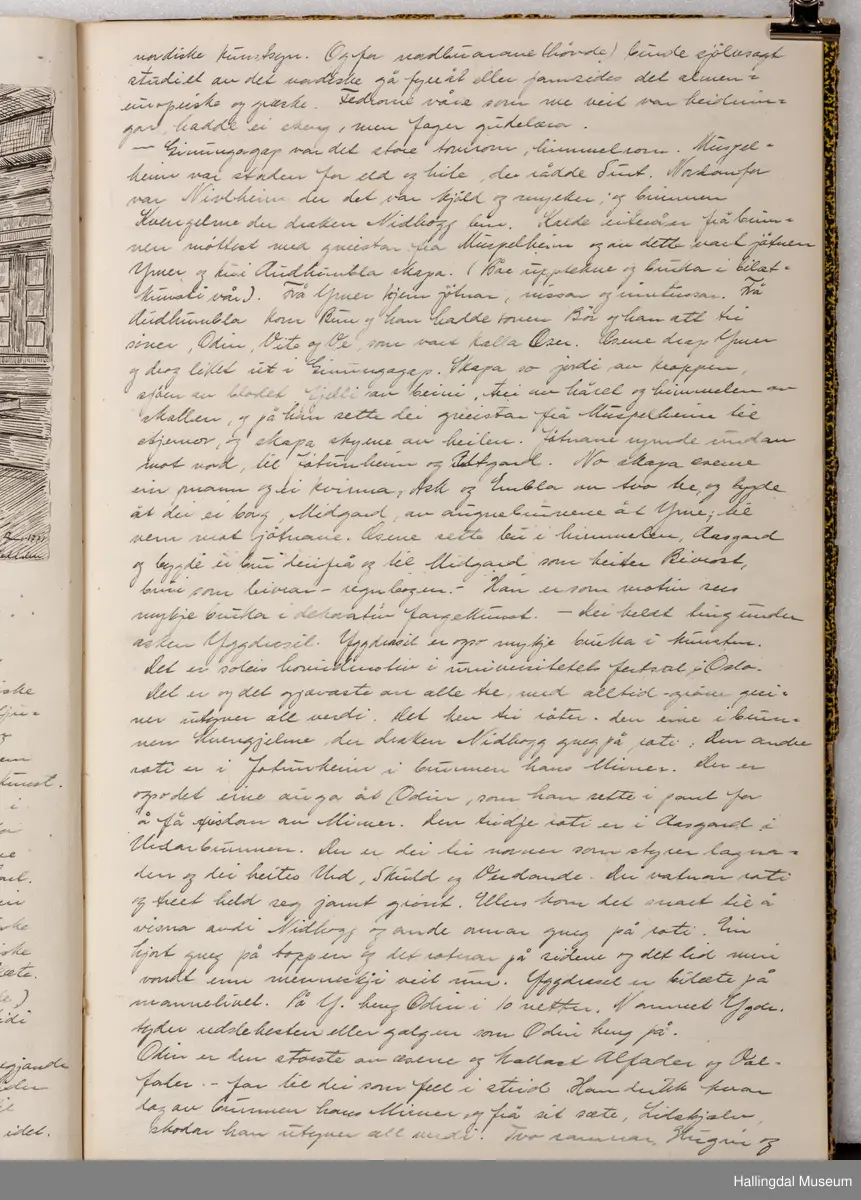 nordiske kunstsyn. Og for nordbuarane (hövde) burde sjölvsagt
studiet av det nordiske gå fyreåt eller jamsides det almen-
europeiske og græske. Fedrane våre som me veit var heidnin-
gar, hadde ei streng, men fager gudelæra.
— Ginnungagap var det store tomrom, himmelrom. Muspel-
heim var staden for eld og hite, der rådde Surt. Nordanfor
var Nivlheim der det var kjöld og myrker, og brunnen
Kvergelme der draken Nidhögg bur. Kalde eiterår frå brun-
nen möttest med gneistar fra Muspelheim og av dette vart jötnen
Ymer og kui Audhumbla skapa. (Båe upptekne og bruka i bilæt-
kunsti vår). Frå Ymer kjem jötnar, nissar og
Audhumbla kom Bure og han hadde sonen Bör og han att tri
söner, Odin, Vile og Ve, som vart kalla Æser. Æsene drap Ymer
og drog liket ut i Ginnungagap. Skapa so jordi av kroppen,
sjöen av blodet fjelli av beini, trei av håret og himmelen av
skallen, og på hån sette dei gneistar frå Muspelheim til
stjernor, og skapa skyene av heilen. Jötnane rymde undan
mot nord, til Jötunheim og Utgard. No skapa æsene
ein mann og ei kvinna, Ask og Embla av tvo tre, og bygde
åt dei ei borg, Midgard, av augnebrunene åt Yme, til
vern mot jötnane. Æsene sette bu i himmelen, Aasgard
og bygde ei bru derifrå og til Midgard som heiter Bivrost,
brui som bivrar – regnbogen. – Hån er som motiv sers
mykje bruka i dekorativ fargekunst. – Dei helst ting under
asken Yggdrasil. Yggdrasil er ogso mykje bruka i kunsten.
Det er soleis hovudmotiv i universitetets festsal i Oslo.
Det er og det gjævaste av alle tre, med alltid-gröne grei-
ner utyver all verdi. Det hev tri röter. den eine i brun-
nen Kvergjelme, der draken Nidhogg gneg på roti; Den andre
roti er i Jotunheim i brunnen hans Mimer. Der er
ogso det eine auga åt Odin, som han sette i pant for
å få visdom av Mimer. Den tridje roti er i Aasgard i
Urdarbrunnen. Der er dei tri norner som styrer lagna-
den og dei heites Urd, Skuld og Verdande. Dei vatnar roti
og treet held seg jamt grönt. Ellers kom det snart til å
visna avdi Nidhogg og andre ormar gneg på roti. Ein
hjort gneg på toppen og det rotnar på sidene og det lid meir
vondt enn menneskji veit um. Yggdrasil er bilæte på
mannelivet. På Y. heng Odin i 10 netter. Namnet Yggdr.
tyder redslehesten eller galgen som Odin heng på.
Odin er den störste av æsene og kallast Alfader og Val-
fader. – far til dei som fell i strid. Han drikk kvar
dag av brunnen hans Mimer og frå sit sæte, Lidskjalv,
skodar han utyver all verdi. Tvo ramnar, Hugin og
Hallingdal Museum